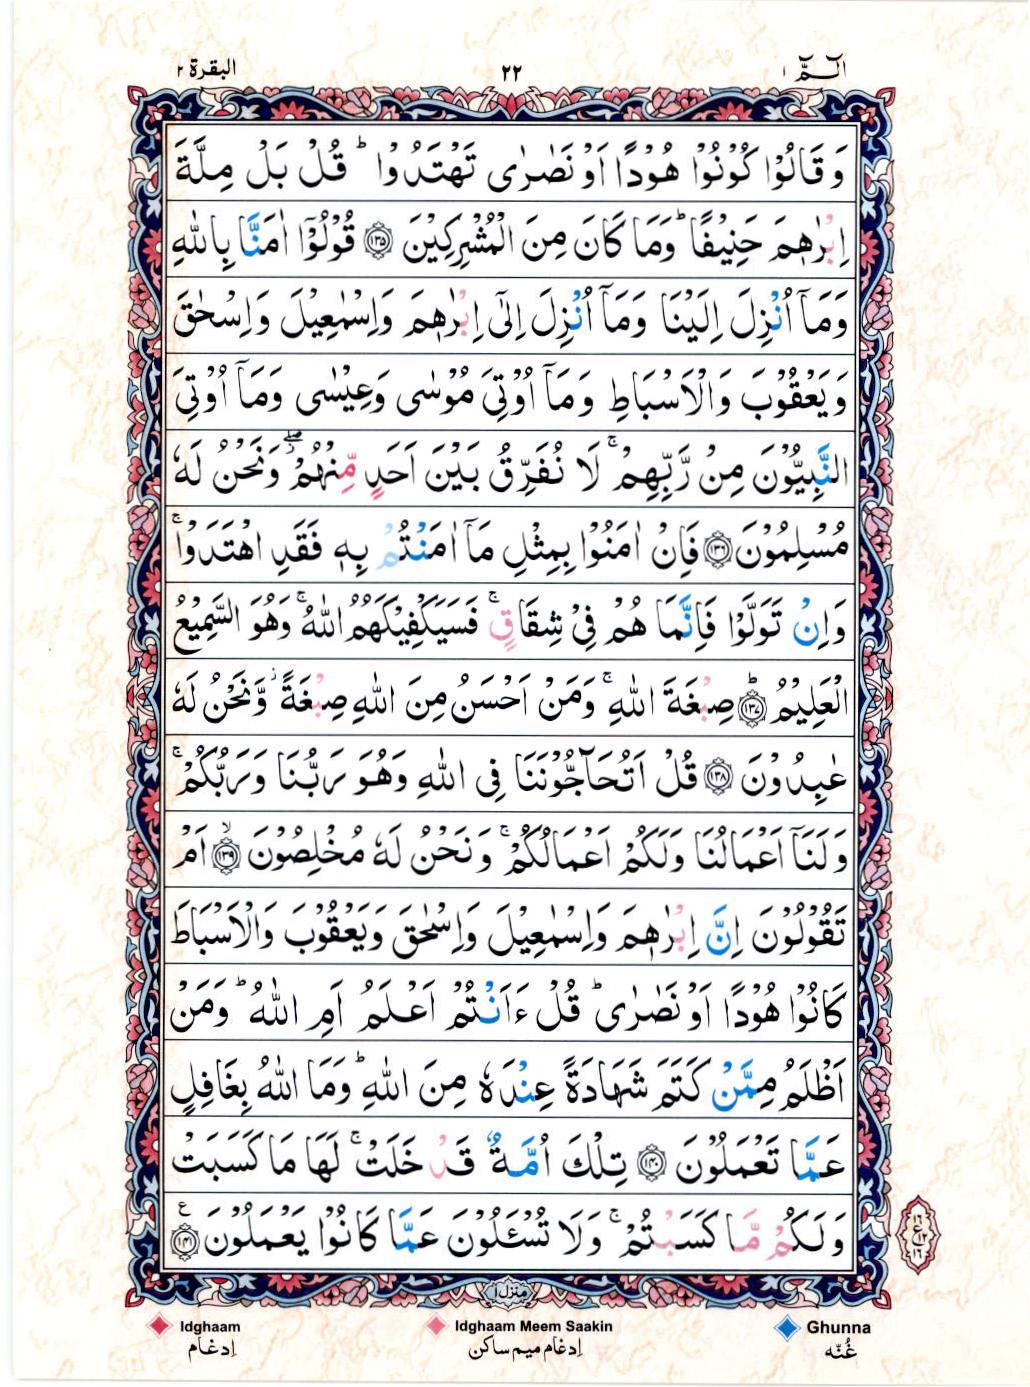 الٓمّٓ ١
٢٢
البقرة ٢
وَقَالُوْا كُوْنُوْا هُوْدًا اَوْ نَصٰرٰى تَهْتَدُوْا ؕ قُلْ بَلْ مِلَّةَ
اِبْرٰهٖمَ حَنِيْفًا ؕ وَمَا كَانَ مِنَ الْمُشْرِكِيْنَ ﴿۱۳۵﴾ قُوْلُوْٓا اٰمَنَّا بِاللّٰهِ
وَمَآ اُنْزِلَ اِلَيْنَا وَمَآ اُنْزِلَ اِلٰٓى اِبْرٰهٖمَ وَاِسْمٰعِيْلَ وَاِسْحٰقَ
وَيَعْقُوْبَ وَالْاَسْبَاطِ وَمَآ اُوْتِيَ مُوْسٰى وَعِيْسٰى وَمَآ اُوْتِيَ
النَّبِيُّوْنَ مِنْ رَّبِّهِمْ ۚ لَا نُفَرِّقُ بَيْنَ اَحَدٍ مِّنْهُمْ ۖ وَنَحْنُ لَهٗ
مُسْلِمُوْنَ ﴿۱۳۶﴾ فَاِنْ اٰمَنُوْا بِمِثْلِ مَآ اٰمَنْتُمْ بِهٖ فَقَدِ اهْتَدَوْا ۚ
وَاِنْ تَوَلَّوْا فَاِنَّمَا هُمْ فِيْ شِقَاقٍ ۚ فَسَيَكْفِيْكَهُمُ اللّٰهُ ۚ وَهُوَ السَّمِيْعُ
الْعَلِيْمُ ﴿۱۳۷﴾ؕ صِبْغَةَ اللّٰهِ ۚ وَمَنْ اَحْسَنُ مِنَ اللّٰهِ صِبْغَةً ؗ وَّنَحْنُ لَهٗ
عٰبِدُوْنَ ﴿۱۳۸﴾ قُلْ اَتُحَآجُّوْنَنَا فِى اللّٰهِ وَهُوَ رَبُّنَا وَرَبُّكُمْ ۚ
وَلَنَآ اَعْمَالُنَا وَلَكُمْ اَعْمَالُكُمْ ۚ وَنَحْنُ لَهٗ مُخْلِصُوْنَ ﴿۱۳۹﴾ۙ اَمْ
تَقُوْلُوْنَ اِنَّ اِبْرٰهٖمَ وَاِسْمٰعِيْلَ وَاِسْحٰقَ وَيَعْقُوْبَ وَالْاَسْبَاطَ
كَانُوْا هُوْدًا اَوْ نَصٰرٰى ؕ قُلْ ءَاَنْتُمْ اَعْلَمُ اَمِ اللّٰهُ ؕ وَمَنْ
اَظْلَمُ مِمَّنْ كَتَمَ شَهَادَةً عِنْدَهٗ مِنَ اللّٰهِ ؕ وَمَا اللّٰهُ بِغَافِلٍ
عَمَّا تَعْمَلُوْنَ ﴿۱۴۰﴾ تِلْكَ اُمَّةٌ قَدْ خَلَتْ ۚ لَهَا مَا كَسَبَتْ
وَلَكُمْ مَّا كَسَبْتُمْ ۚ وَلَا تُسْـَٔلُوْنَ عَمَّا كَانُوْا يَعْمَلُوْنَ ﴿۱۴۱﴾ع
منزل ١
Idghaam
ادغام
Idghaam Meem Saakin
ادغام ميم ساكن
Ghunna
غُنّه